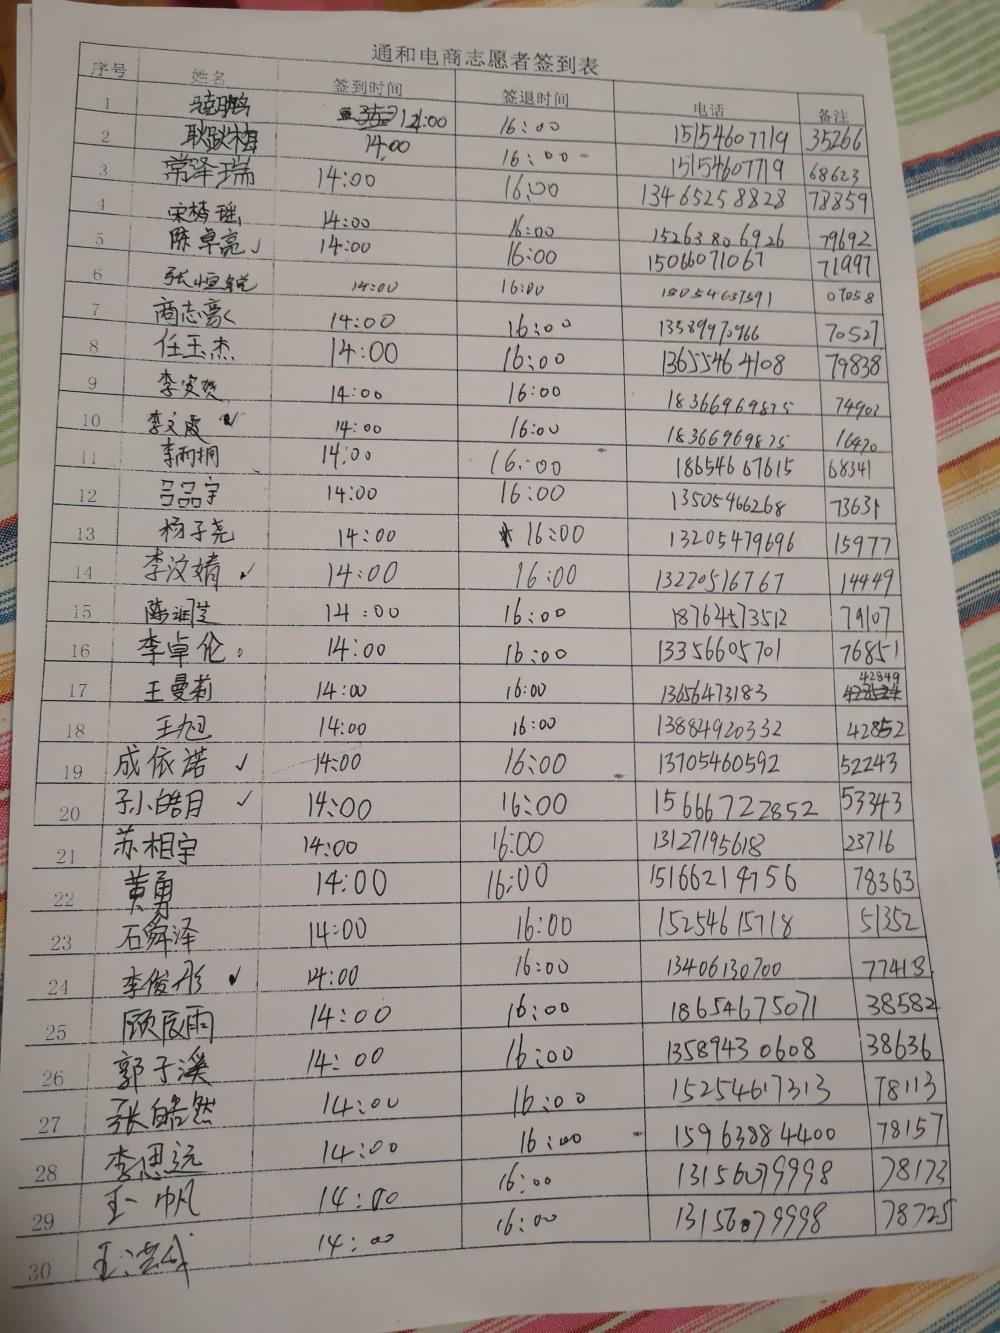 通和电商志愿者签到表
序号 姓名 签到时间 签退时间 电话 备注
1 14:00 16:00 15154607719 35266
2 耿跃梅 14:00 16:00 15154607719 68623
3 常泽瑞 14:00 16:00 13465258828 78859
4 宋梦瑶 14:00 16:00 15263806926 79692
5 陈卓亮 ✓ 14:00 16:00 15066071067 71997
6 张恒锐 14:00 16:00 18054637591 07058
7 商志豪 14:00 16:00 13589970966 70527
8 任玉杰 14:00 16:00 13655464108 79838
9 14:00 16:00 18366969825 74902
10 李文霞 14:00 16:00 18366969825 16470
11 李雨桐 14:00 16:00 18654667615 68341
12 吕品宇 14:00 16:00 13505466268 73631
13 杨子尧 14:00 16:00 13205479696 15977
14 李汶婧 ✓ 14:00 16:00 13220516767 14449
15 14:00 16:00 18764573512 79107
16 李卓伦 14:00 16:00 13356605701 76851
17 王曼莉 14:00 16:00 13656473183 42849
18 王旭 14:00 16:00 13884920332 42852
19 成依诺 ✓ 14:00 16:00 13705460592 52243
20 孙小皓月 ✓ 14:00 16:00 15666722852 53343
21 苏相宇 14:00 16:00 13127195618 23716
22 黄勇 14:00 16:00 15166214756 78363
23 石舜泽 14:00 16:00 15254615718 51352
24 李俊彤 ✓ 14:00 16:00 13406130700 77413
25 顾辰雨 14:00 16:00 18654675071 38582
26 郭子溪 14:00 16:00 13589430608 38636
27 张皓然 14:00 16:00 15254617313 78113
28 李思远 14:00 16:00 15963884400 78157
29 王一帆 14:00 16:00 13156079998 78173
30 14:00 16:00 13156079998 78725